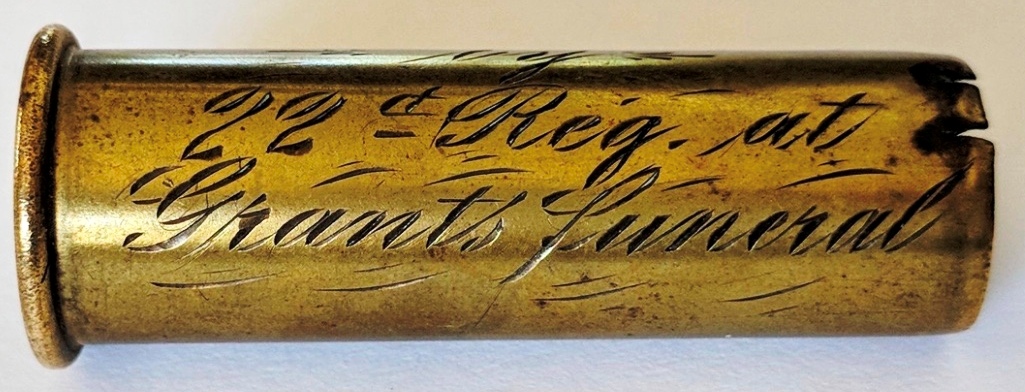 22d Reg. at
Grants Funeral